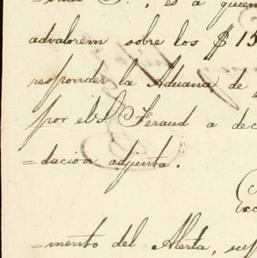 es á quien
advalorem sobre los $15
responder la Aduana de
por el Sr Feraud a dec
=dacion adjunta.
=mento del Alerta, sup